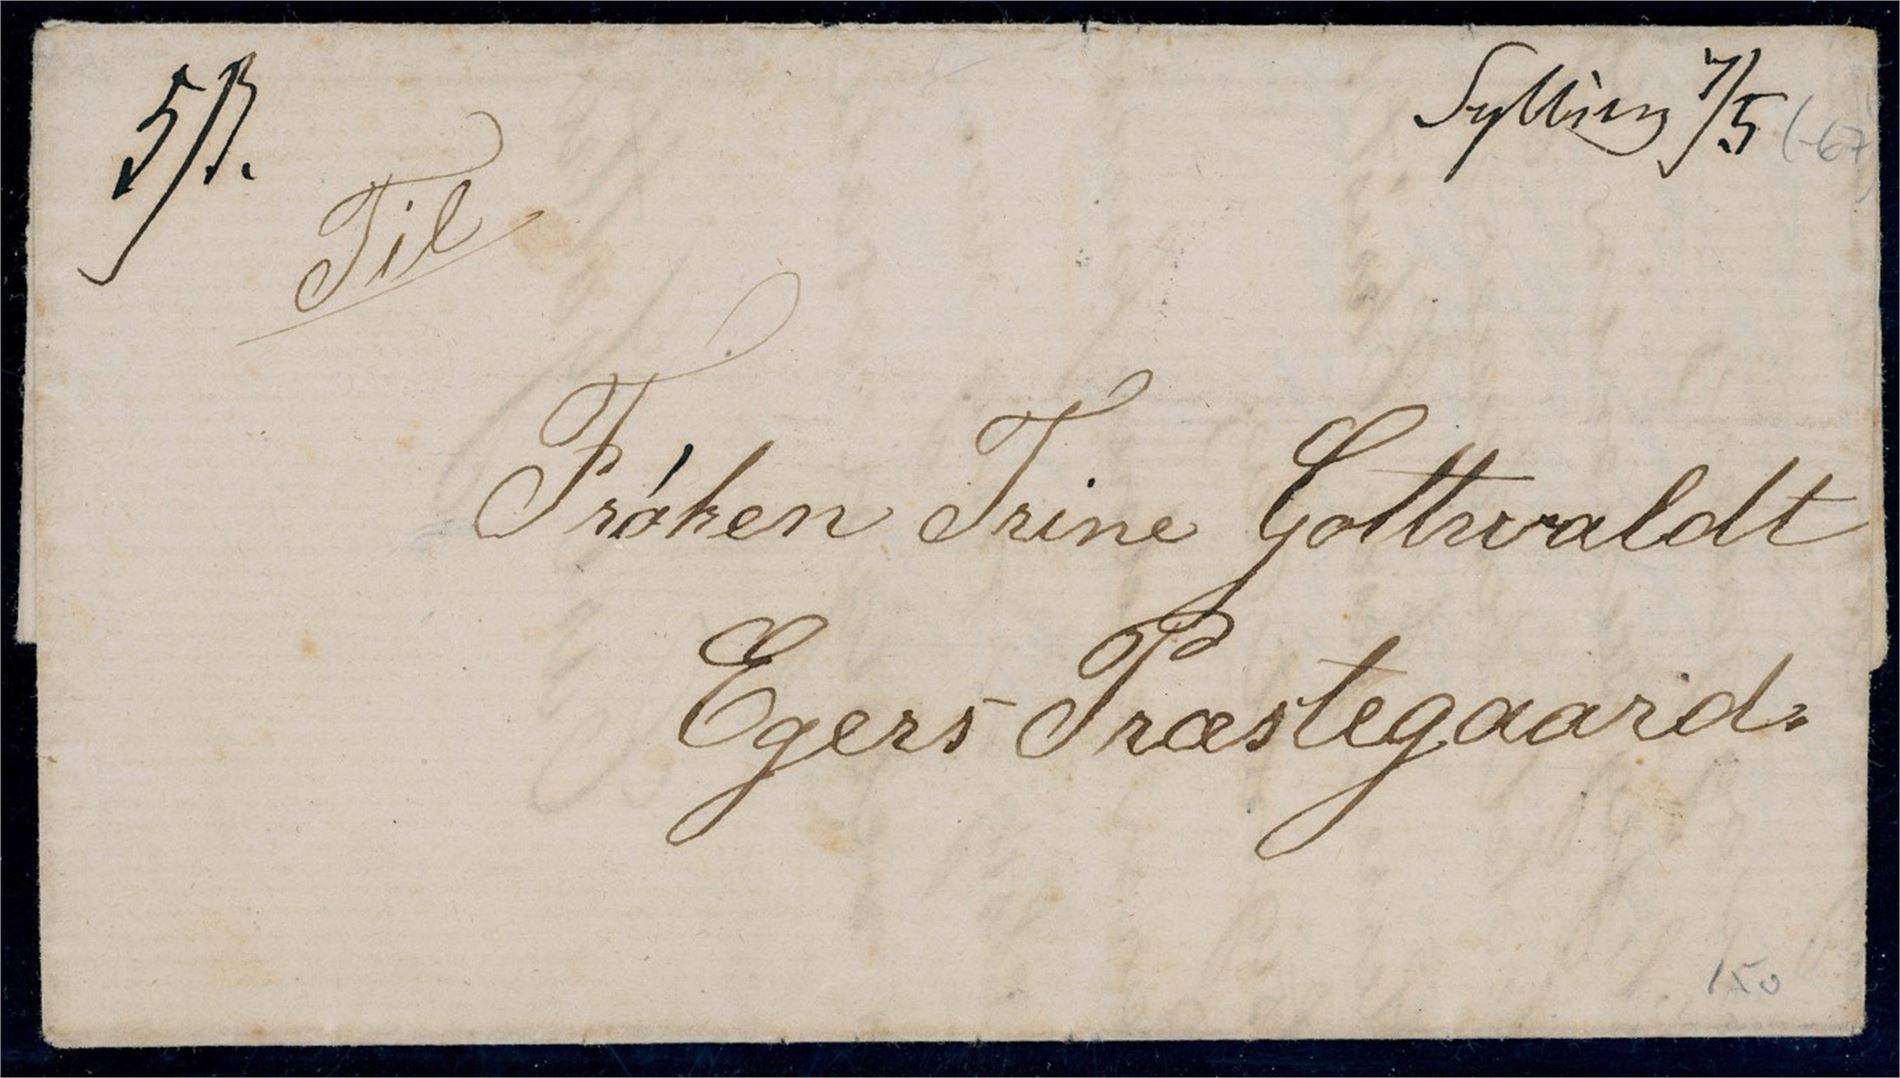 5/ß.
Sylling 7/5 (-67)
Til
Frøken Trine Gottwaldt
Egers Præstegaard.
150